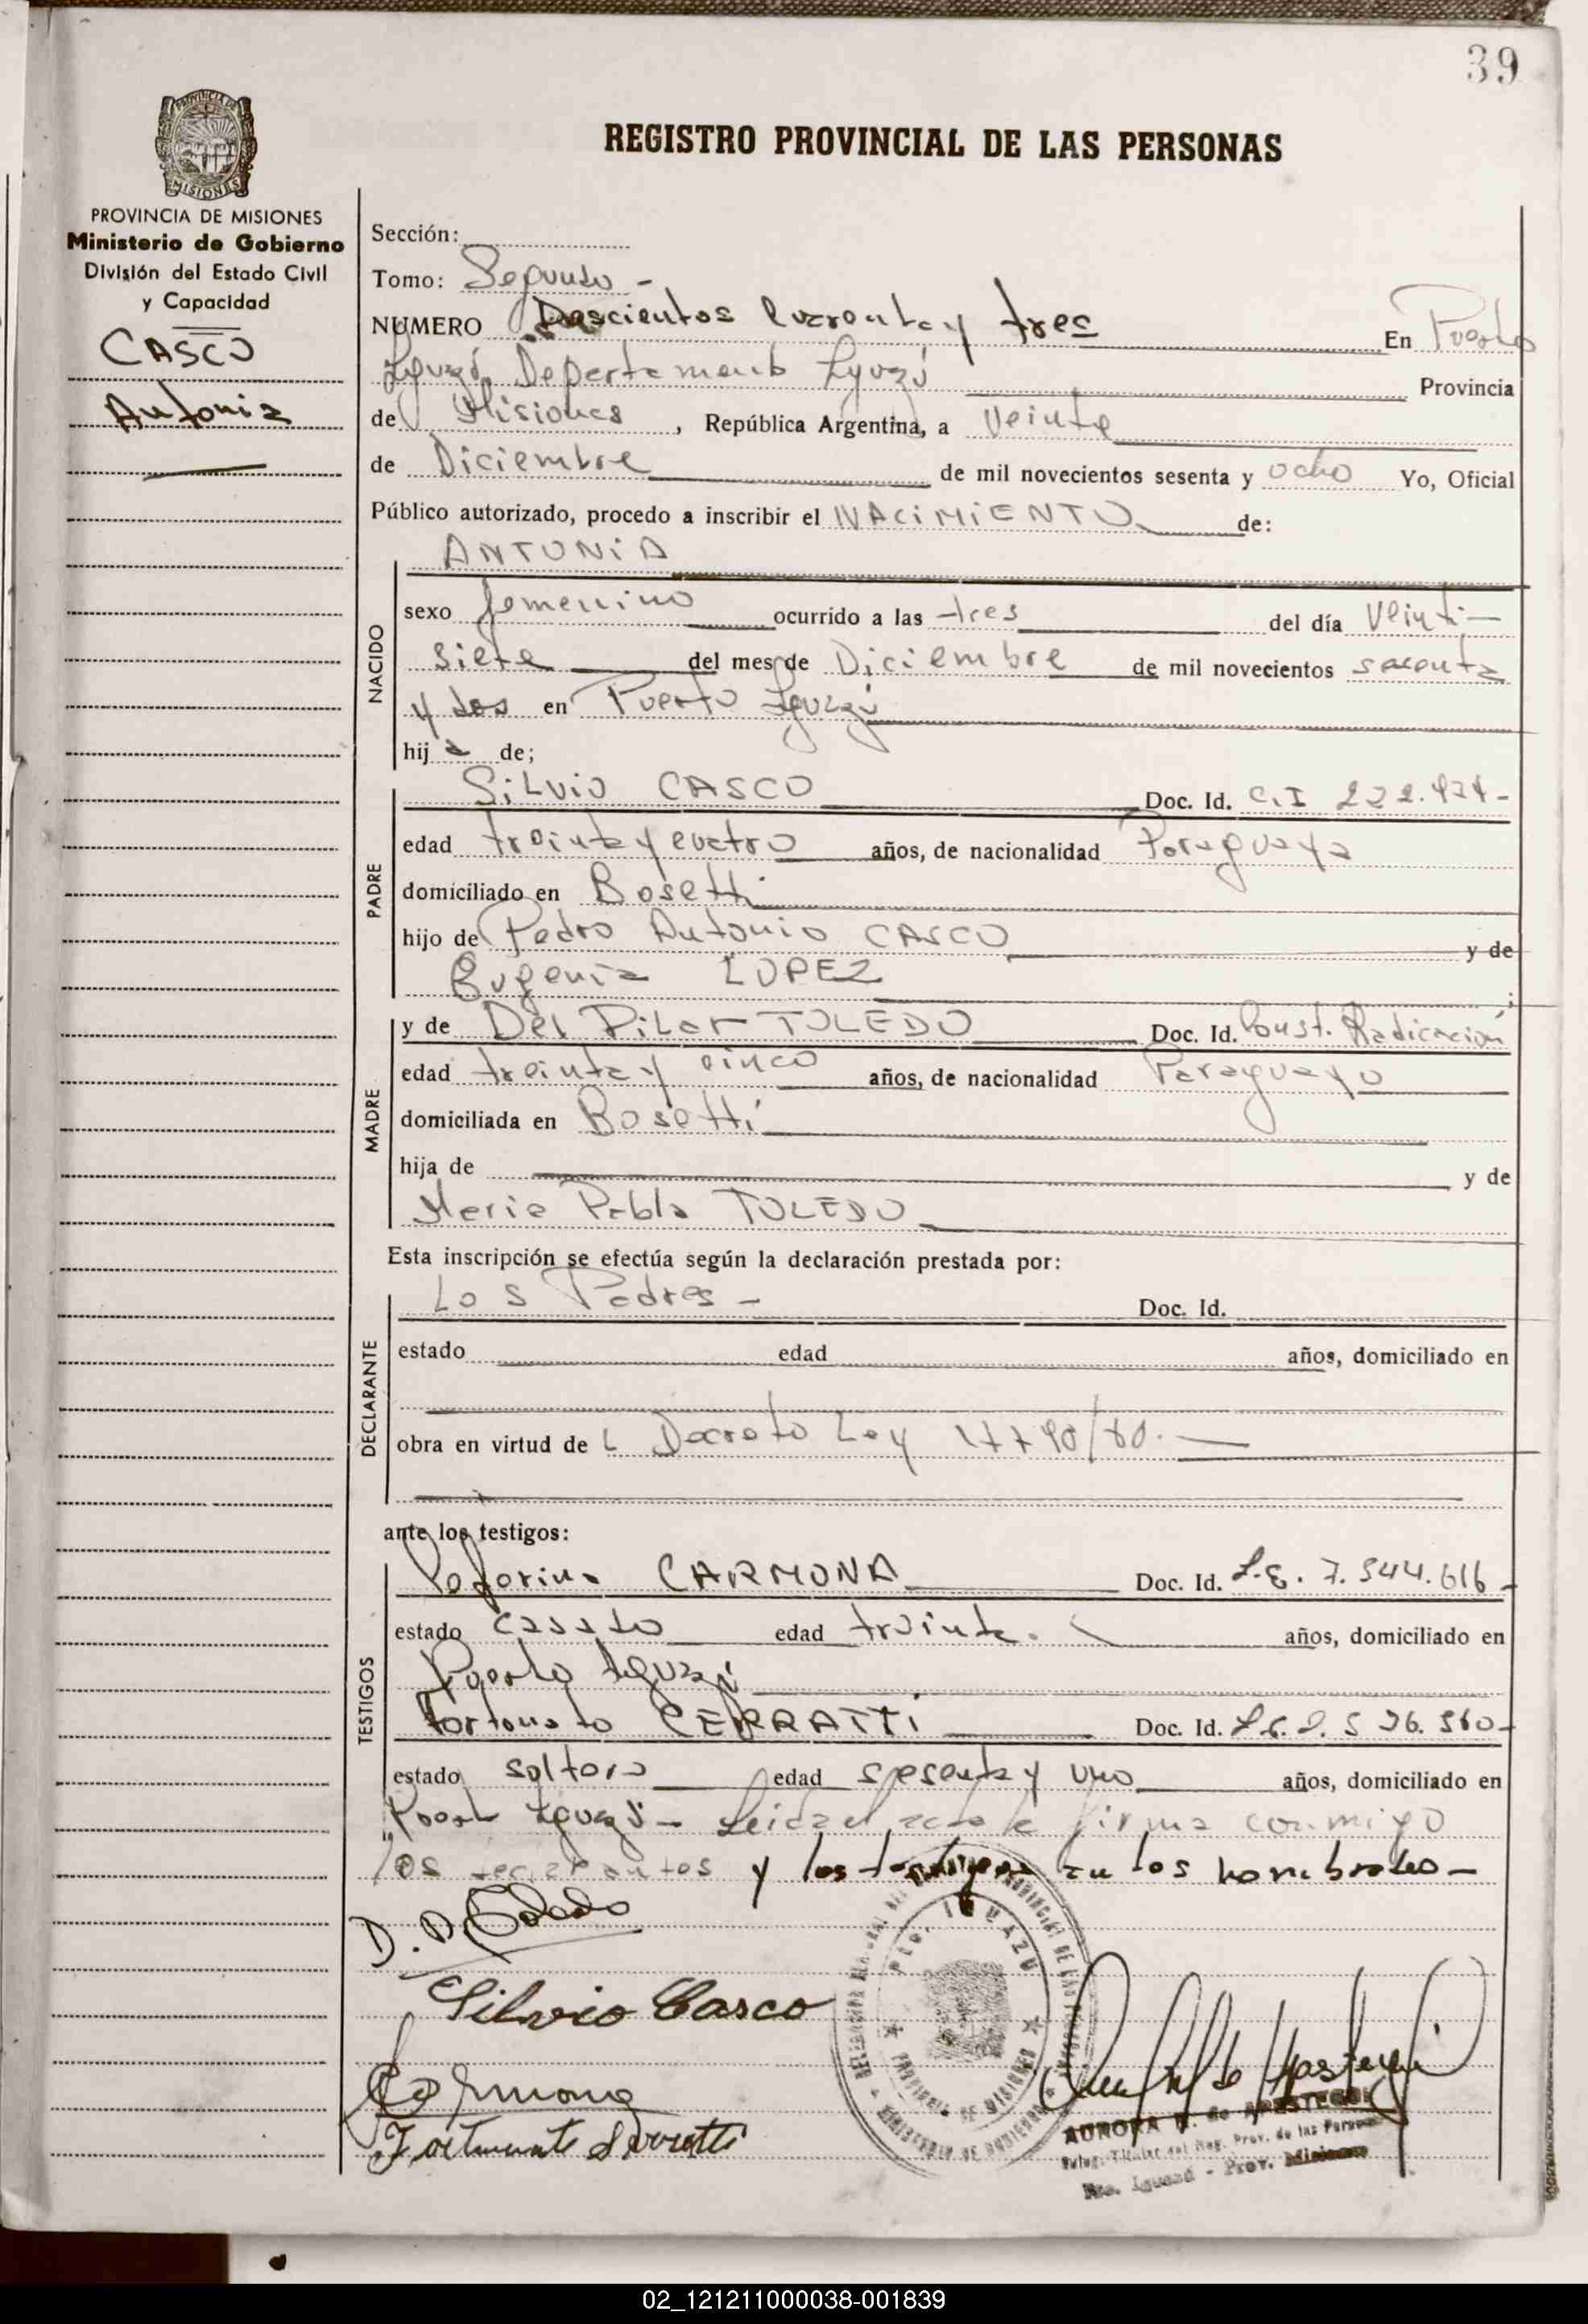 39
REGISTRO PROVINCIAL DE LAS PERSONAS
PROVINCIA DE MISIONES
Ministerio de Gobierno
División del Estado Civil
y Capacidad
CASCO
Antonia
Sección:
Tomo: Segundo -
NUMERO Doscientos Cuarenta y tres En Puerto
Iguazú Departamento Iguazú Provincia
de Misiones, República Argentina, a Veinte
de Diciembre de mil novecientos sesenta y ocho Yo, Oficial
Público autorizado, procedo a inscribir el NACIMIENTO de:
NACIDO
ANTONIA
sexo femenino ocurrido a las tres del día Veinti-
siete del mes de Diciembre de mil novecientos sesenta
y dos en Puerto Iguazú
hija de;
PADRE
Silvio CASCO Doc. Id. C.I 222.424-
edad treinta y cuatro años, de nacionalidad Paraguaya
domiciliado en Bosetti
hijo de Pedro Antonio CASCO y de
Eugenia LOPEZ ;
MADRE
y de Del Pilar TOLEDO Doc. Id. Const. Radicación
edad treinta y cinco años, de nacionalidad Paraguayo
domiciliada en Bosetti
hija de y de
Maria Pabla TOLEDO
Esta inscripción se efectúa según la declaración prestada por:
DECLARANTE
Los Padres - Doc. Id.
estado edad años, domiciliado en
obra en virtud de L Decreto Ley
ante los testigos:
TESTIGOS
CARMONA Doc. Id. L.E. 7.544.616-
estado casado edad treinta. años, domiciliado en
Puerto Iguazú
Fortunato CERRATTI Doc. Id.
estado soltero edad sesenta y uno años, domiciliado en
Iguazú - Leida el acta la firma conmigo
los declarantes y los testigos en los nombrados -
D. P. Toledo
Silvio Casco
Carmona
Pto. IGUAZU
PROVINCIA DE MISIONES
AURORA de APESTEGUI
Deleg. Titular del Reg. Prov. de las Personas
Pto. Iguazú - Prov. Misiones
02_121211000038-001839